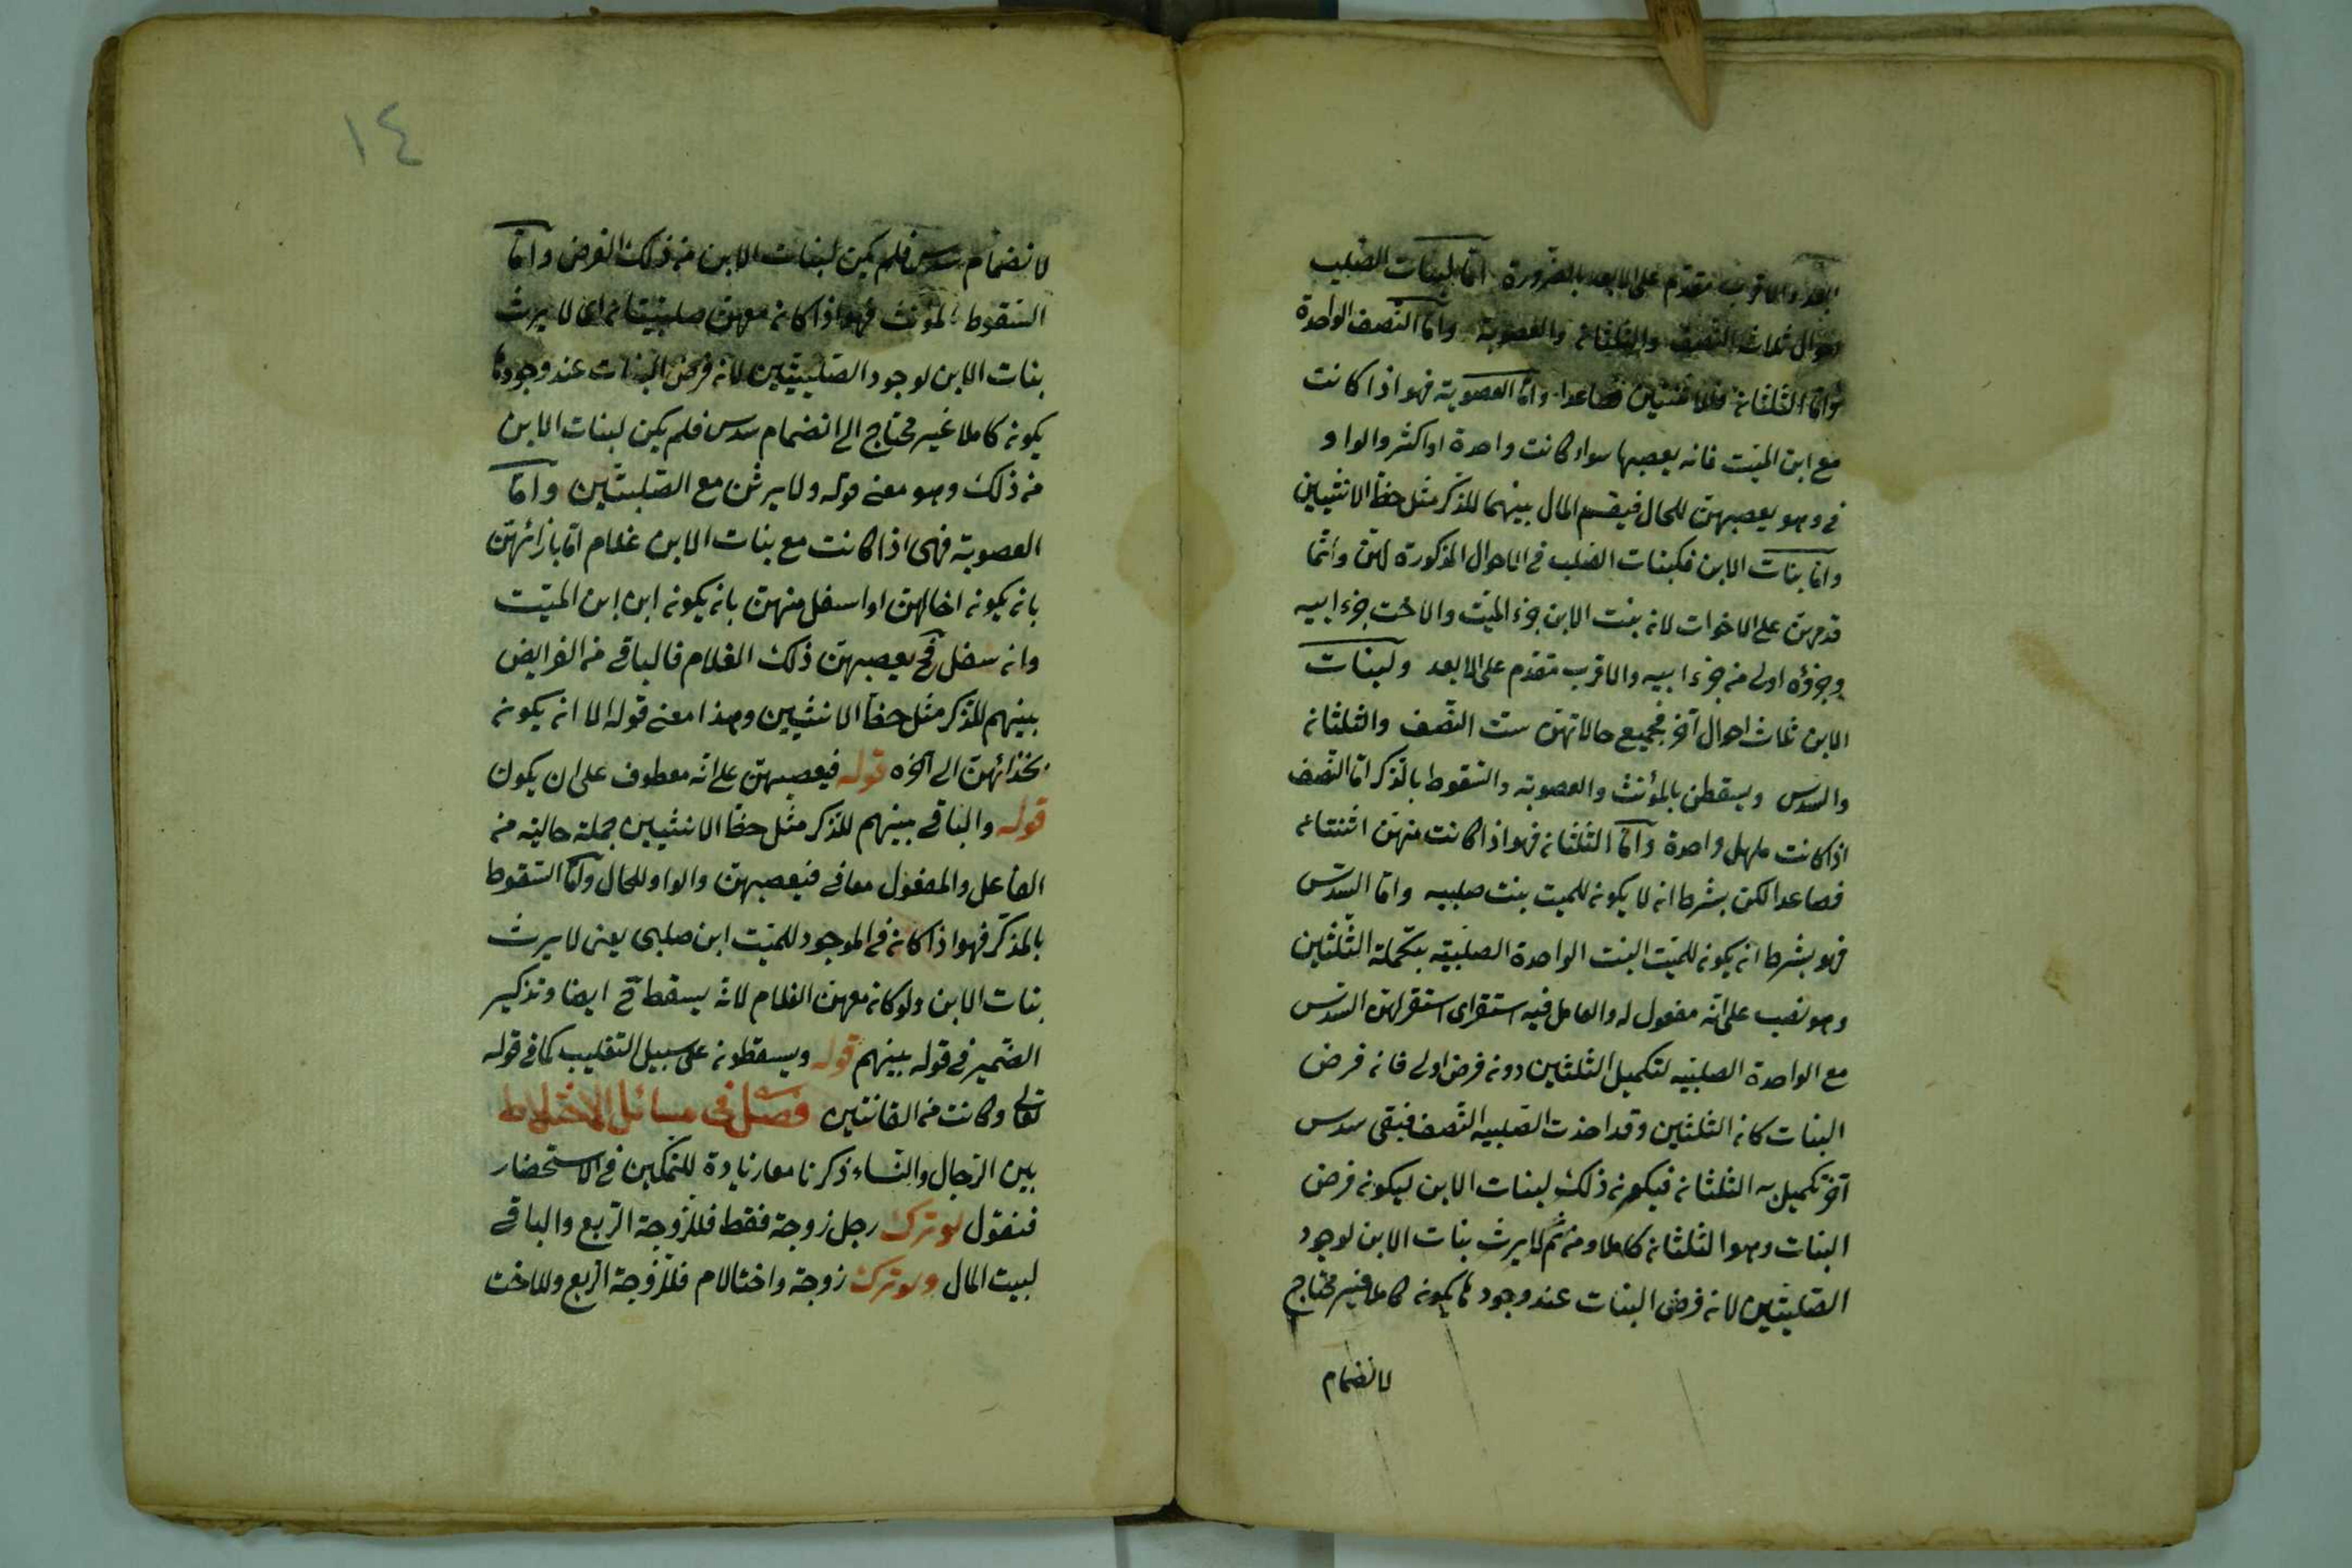 ابعد والاقرب مقدّم على الابعد بالضرورة امّا لبنات الصّلب
احوال ثلاث النّصف والثلثان والعصوبة وامّا النّصف الواحدة
وامّا الثلثان فللاثنتين فصاعدا وامّا العصوبة فهو اذا كانت
مع ابن الميّت فانه يعصبها سواء كانت واحدة او اكثر والواو
فى وهو يعصبهنّ للحال فيقسم المال بينهما للذّكر مثل حظّ الانثيين
وامّا بنات الابن فكبنات الصّلب فى الاحوال المذكورة لهنّ وانّما
قدمهنّ على الاخوات لانّ بنت الابن جزء الميّت والاخت جزء ابيه
وجزؤه اولى من جزء ابيه والاقرب مقدّم على الابعد ولبنات
الابن ثلاث احوال آخر فجميع حالاتهنّ ستّ النّصف والثلثان
والسّدس ويسقطن بالمؤنّث والعصوبة والسّقوط بالذّكر امّا النّصف
اذا كانت واحدة وامّا الثّلثان فهو اذا كانت منهنّ اثنتان
فصاعدا لكن بشرط ان لا يكون للميت بنت صلبيه وامّا السّدس
فهو بشرط ان يكون للميّت البنت الواحدة الصلبيّه بتكملة الثّلثين
وهو نصب على انّه مفعول له والعامل فيه استقر اى استقر لهنّ السّدس
مع الواحدة الصلبيّه لتكميل الثلثين دون فرض اولى فان فرض
البنات كان الثلثين وقد اخذت الصّلبيه النّصف فبقى سدس
آخر تكميل به الثلثان فيكون ذلك لبنات الابن ليكون فرض
البنات وهو الثلثان كاملا ومن ثمّ لا يرث بنات الابن لوجود
الصّلبيّتين لان فرض البنات عند وجودها يكون كاملا غير محتاج
لانضمام
١٤
لانضمام سدس فلم يكن لبنات الابن من ذلك الفرض وامّا
السّقوط بالمؤنث فهو اذا كان معهنّ صلبيّتان اى لا يرث
بنات الابن لوجود الصّلبيّتين لان فرض البنات عند وجودها
يكون كاملا غير محتاج الى انضمام سدس فلم يكن لبنات الابن
من ذلك وهو معنى قوله ولا يرثن مع الصّلبيّتين وامّا
العصوبة فهى اذا كانت مع بنات الابن غلام امّا بازائهنّ
بان يكون اخا لهنّ او اسفل منهنّ بان يكون ابن ابن الميّت
وان سفل فح يعصبهنّ ذلك الغلام فالباقى من الفرايض
بينهم للذّكر مثل حظّ الانثيين وهذا معنى قوله الا ان يكون
بحذائهنّ الى آخره قوله فيعصبهنّ على انّه معطوف على ان يكون
قوله والباقى بينهم للذّكر مثل حظّ الانثيين جملة حاليّه من
الفاعل والمفعول معا فى فيعصبهنّ والواو للحال وامّا السّقوط
بالمذكّر فهو اذا كان فى الموجود للميّت ابن صلبى يعنى لا يرث
بنات الابن ولو كان معهنّ الغلام لانّه يسقط ح ايضا وتذكير
الضّمير فى قوله بينهم قوله ويسقطون على سبيل التغليب كما فى قوله
تعالى وكانت من القانتين فصل فى مسائل الاختلاط
بين الرّجال والنّساء ذكرنا معا زيادة للتمكين فى الاستحضار
فنقول لو ترك رجل زوجة فقط فللزّوجة الرّبع والباقى
لبيت المال ولو ترك زوجة واختا لام فللزّوجة الرّبع وللاخت